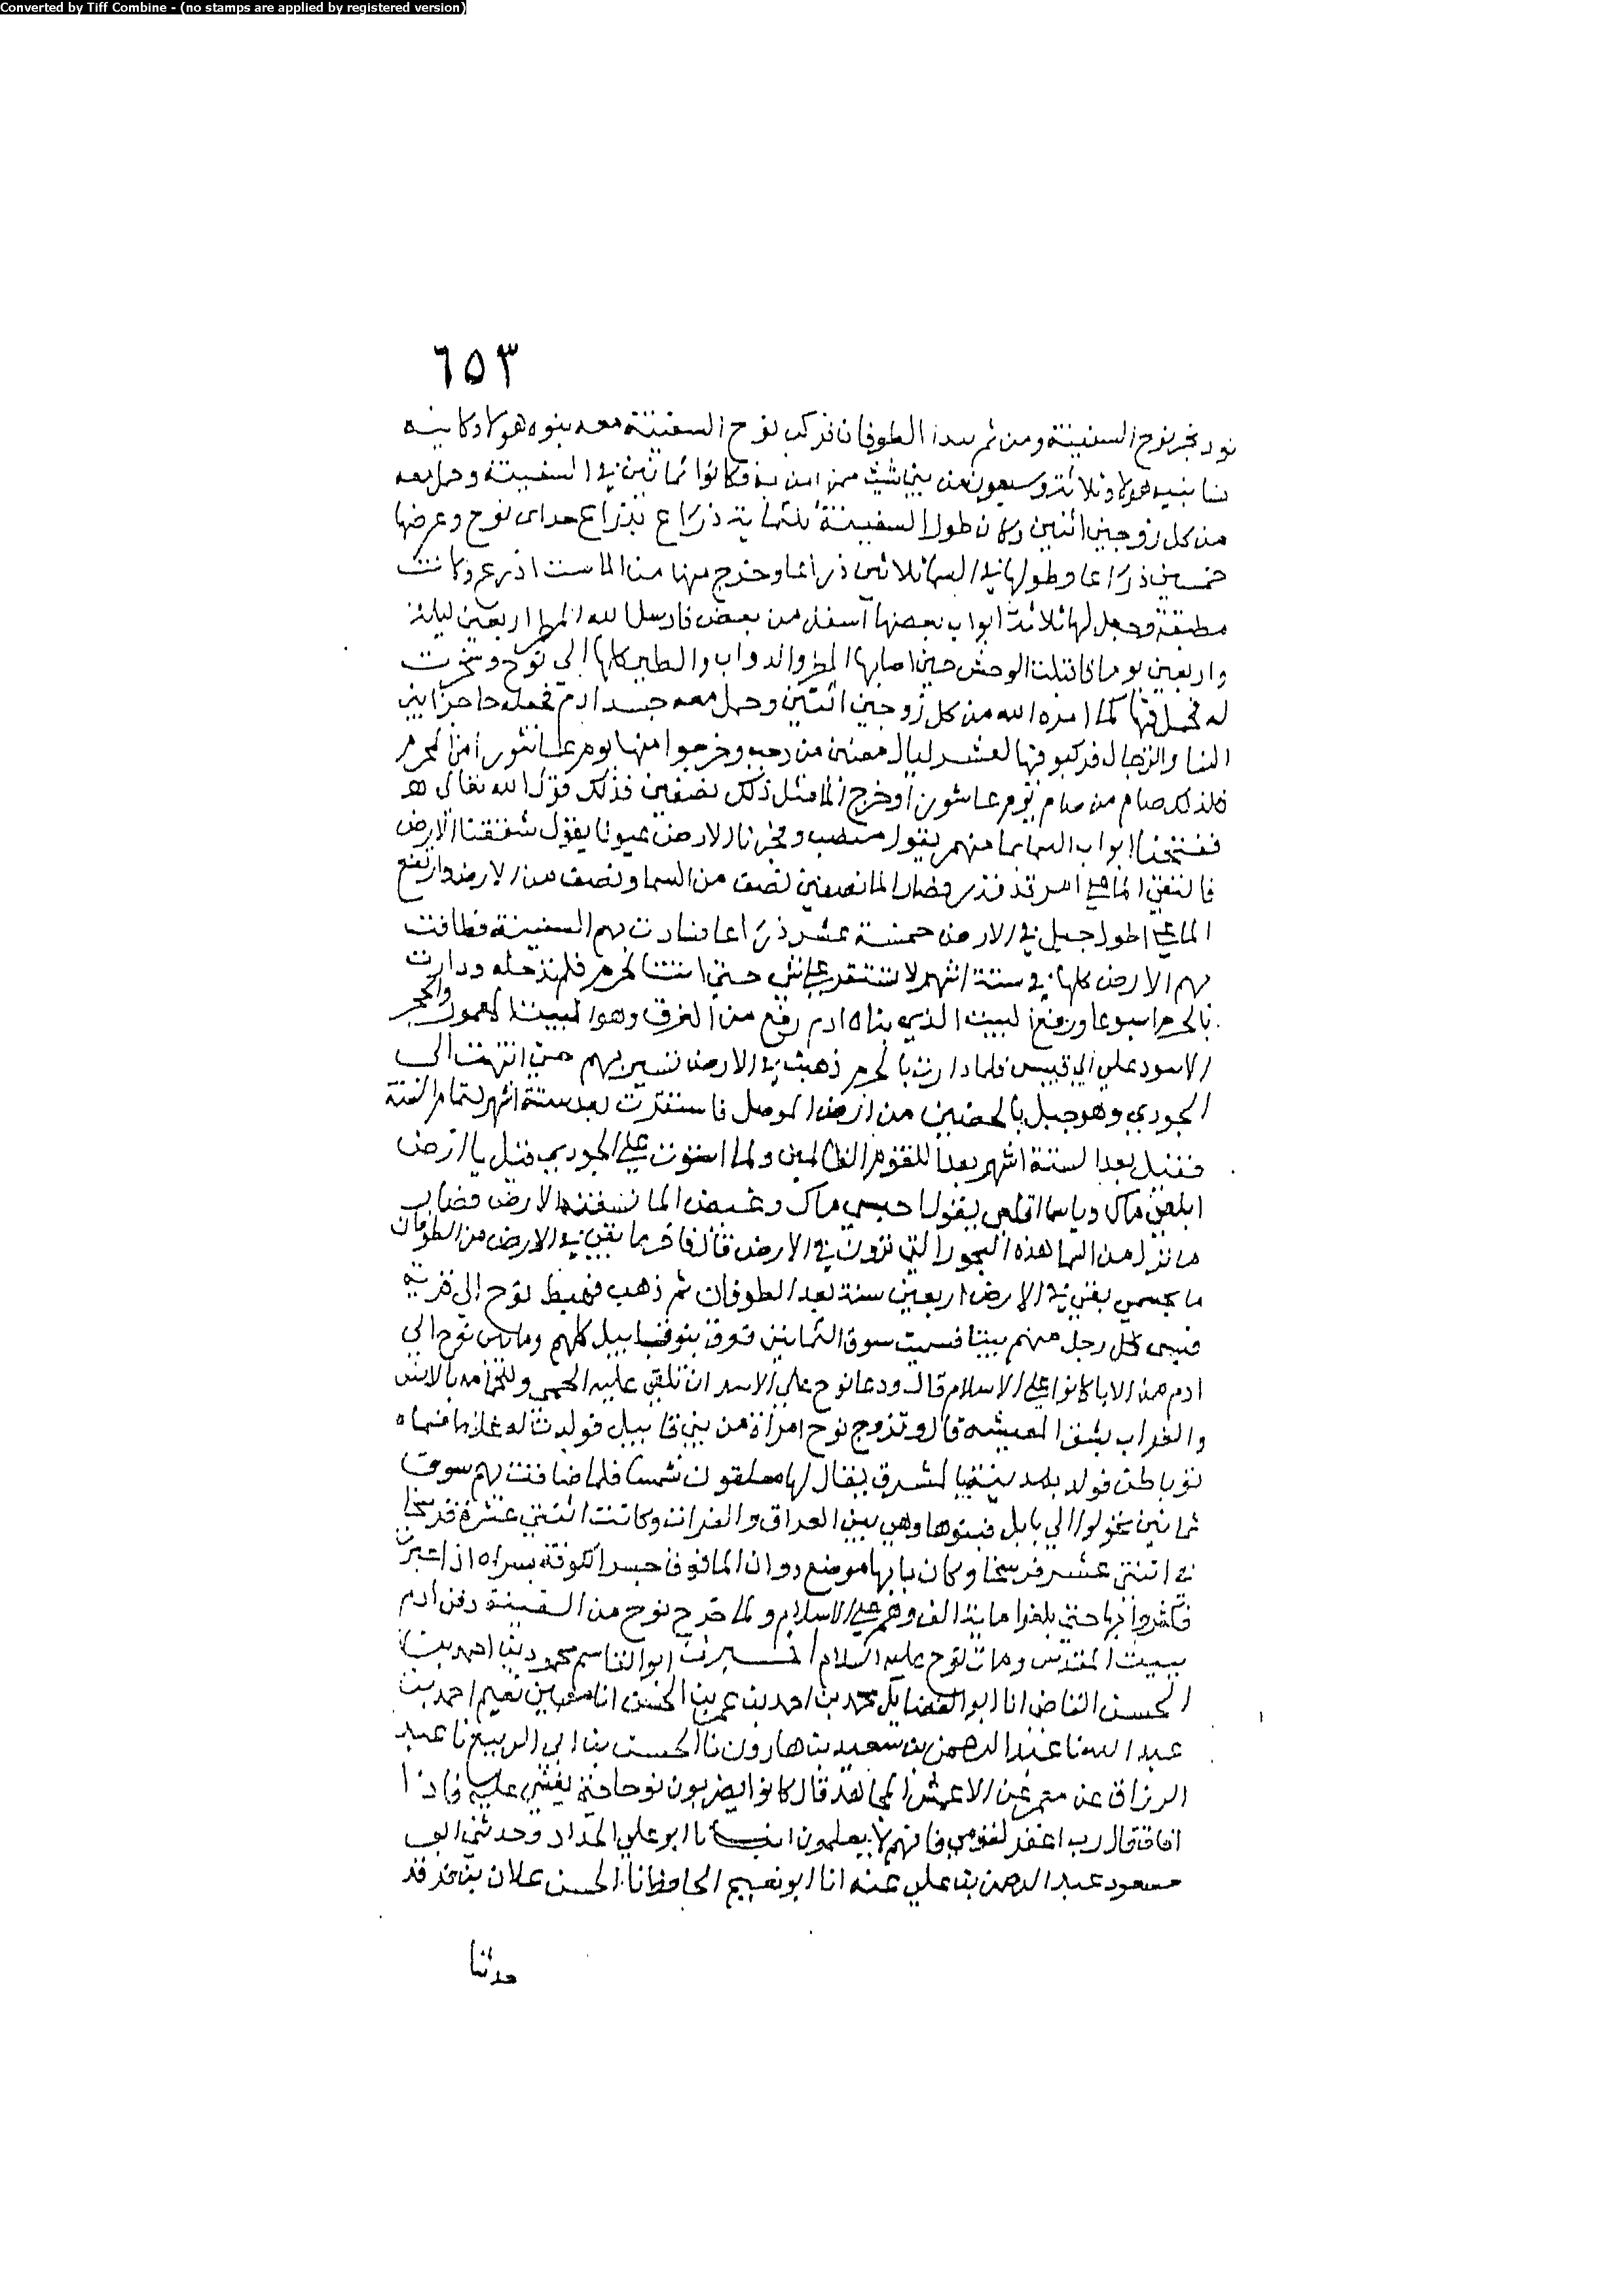 Converted by Tiff Combine - (no stamps are applied by registered version)
٦٥٣
نود نجر نوح السفينة ومن ثم بدا الطوفان فركب نوح السفينة معه بنوه هولا وكاينه
نسا بنيه هولا وثلاثة وسبعون من بني شيث ممن امن به فكانوا ثمانين في السفينة وحمل معه
من كل زوجين اثنين وكان طول السفينة ثلثماية ذراع بذراع جد ابي نوح وعرضها
خمسين ذراعا وطولها في السما ثلاثين ذراعا وخرج منها من الما ست اذرع وكانت
مطبقة وجعل لها ثلاثة ابواب بعضها اسفل من بعض فارسل الله المطر اربعين ليلة
واربعين يوما فاقبلت الوحش حين اصابها المطر والدواب والطير كلها الي نوح وسخرت
له فحمل فيها كما امره الله من كل زوجين اثنين وحمل معه جسد ادم فجعله حاجزا بين
النسا والرجال فركبوا فيها لعشر ليال مضين من رجب وخرجوا منها يوم عاشورا من المحرم
فلذلك صام من صام يوم عاشورا وخرج الما مثل ذلك نصفين فذلك قول الله تعالى
ففتحنا ابواب السما بما منهمر يقول منصب وفجرنا الارض عيونا يقول شققنا الارض
فالتقى الما علي امر قد قدر فصار الما نصفين نصف من السما ونصف من الارض وارتفع
الما علي اطول جبل في الارض خمسة عشر ذراعا فسارت بهم السفينة فطافت
بهم الارض كلها في ستة اشهر لا تستقر علي شي حتي اتت الحرم فلم تدخله ودارت
بالحرم اسبوعا ورفع البيت الذي بناه ادم رفع من الغرق وهو البيت المعمور والحجر
الاسود علي ابي قبيس فلما دارت بالحرم ذهبت في الارض تسير بهم حتي انتهت الى
الجودي وهو جبل بالحضنين من ارض الموصل فاستقرت بعد ستة اشهر لتمام السنة
فقيل بعد الستة اشهر بعدا للقوم الظالمين ولما استوت علي الجودي فقيل يا ارض
ابلعي ماك وياسما اقلعي يقول احبسي ماك وغيض الما نشفته الارض فصار
ما نزل من السما هذه البحور التي ترون في الارض قال فاخر ما بقي في الارض من الطوفان
ما بحسمي بقي في الارض اربعين سنة بعد الطوفان ثم ذهب فهبط نوح الى قرية
فبنى كل رجل منهم بيتا فسميت سوق الثمانين فغرق بنو قابيل كلهم وما بين نوح الي
ادم من الابا كانوا علي الاسلام قال ودعا نوح علي الاسد ان تلقي عليه الحمى وللحمامة بالانس
والغراب بشقا المعيشه قال وتزوج نوح امراة من بني قابيل فولدت له غلاما فسماه
نوباطن فولد بمدينة بالمشرق يقال لها معلقون شمسا فلما ضاقت بهم سوق
ثمانين تحولوا الي بابل فبنوها وهي بين العراق والفرات وكانت اثنتي عشرة فرسخا
في اثنتي عشر فرسخا وكان بابها موضع دوران الما فوق جسر الكوفة يسراه اذا عبرت
فكثروا بها حتي بلغوا ماية الف وهم علي الاسلام ولما خرج نوح من السفينة دفن ادم
ببيت المقدس ومات نوح عليه السلام اخبرنا ابو القاسم محمود بن احمد بن
الحسن القاضي انا ابو الفضايل محمد بن احمد بن عمر بن الحسن انا ابو نعيم احمد بن
عبد الله نا عبد الرحمن بن سعيد بن هارون نا الحسن بن ابي الربيع نا عبد
الرزاق عن معمر عن الاعمش المجاهد قال كانوا يضربون نوحا حتي يغشي عليه فاذا
افاق قال رب اغفر لقومي فانهم لا يعلمون انبانا ابو علي الحداد وحدثني ابو
مسعود عبد الرحمن بن علي عنه انا ابو نعيم الحافظ نا الحسن علان بن
حدثنا